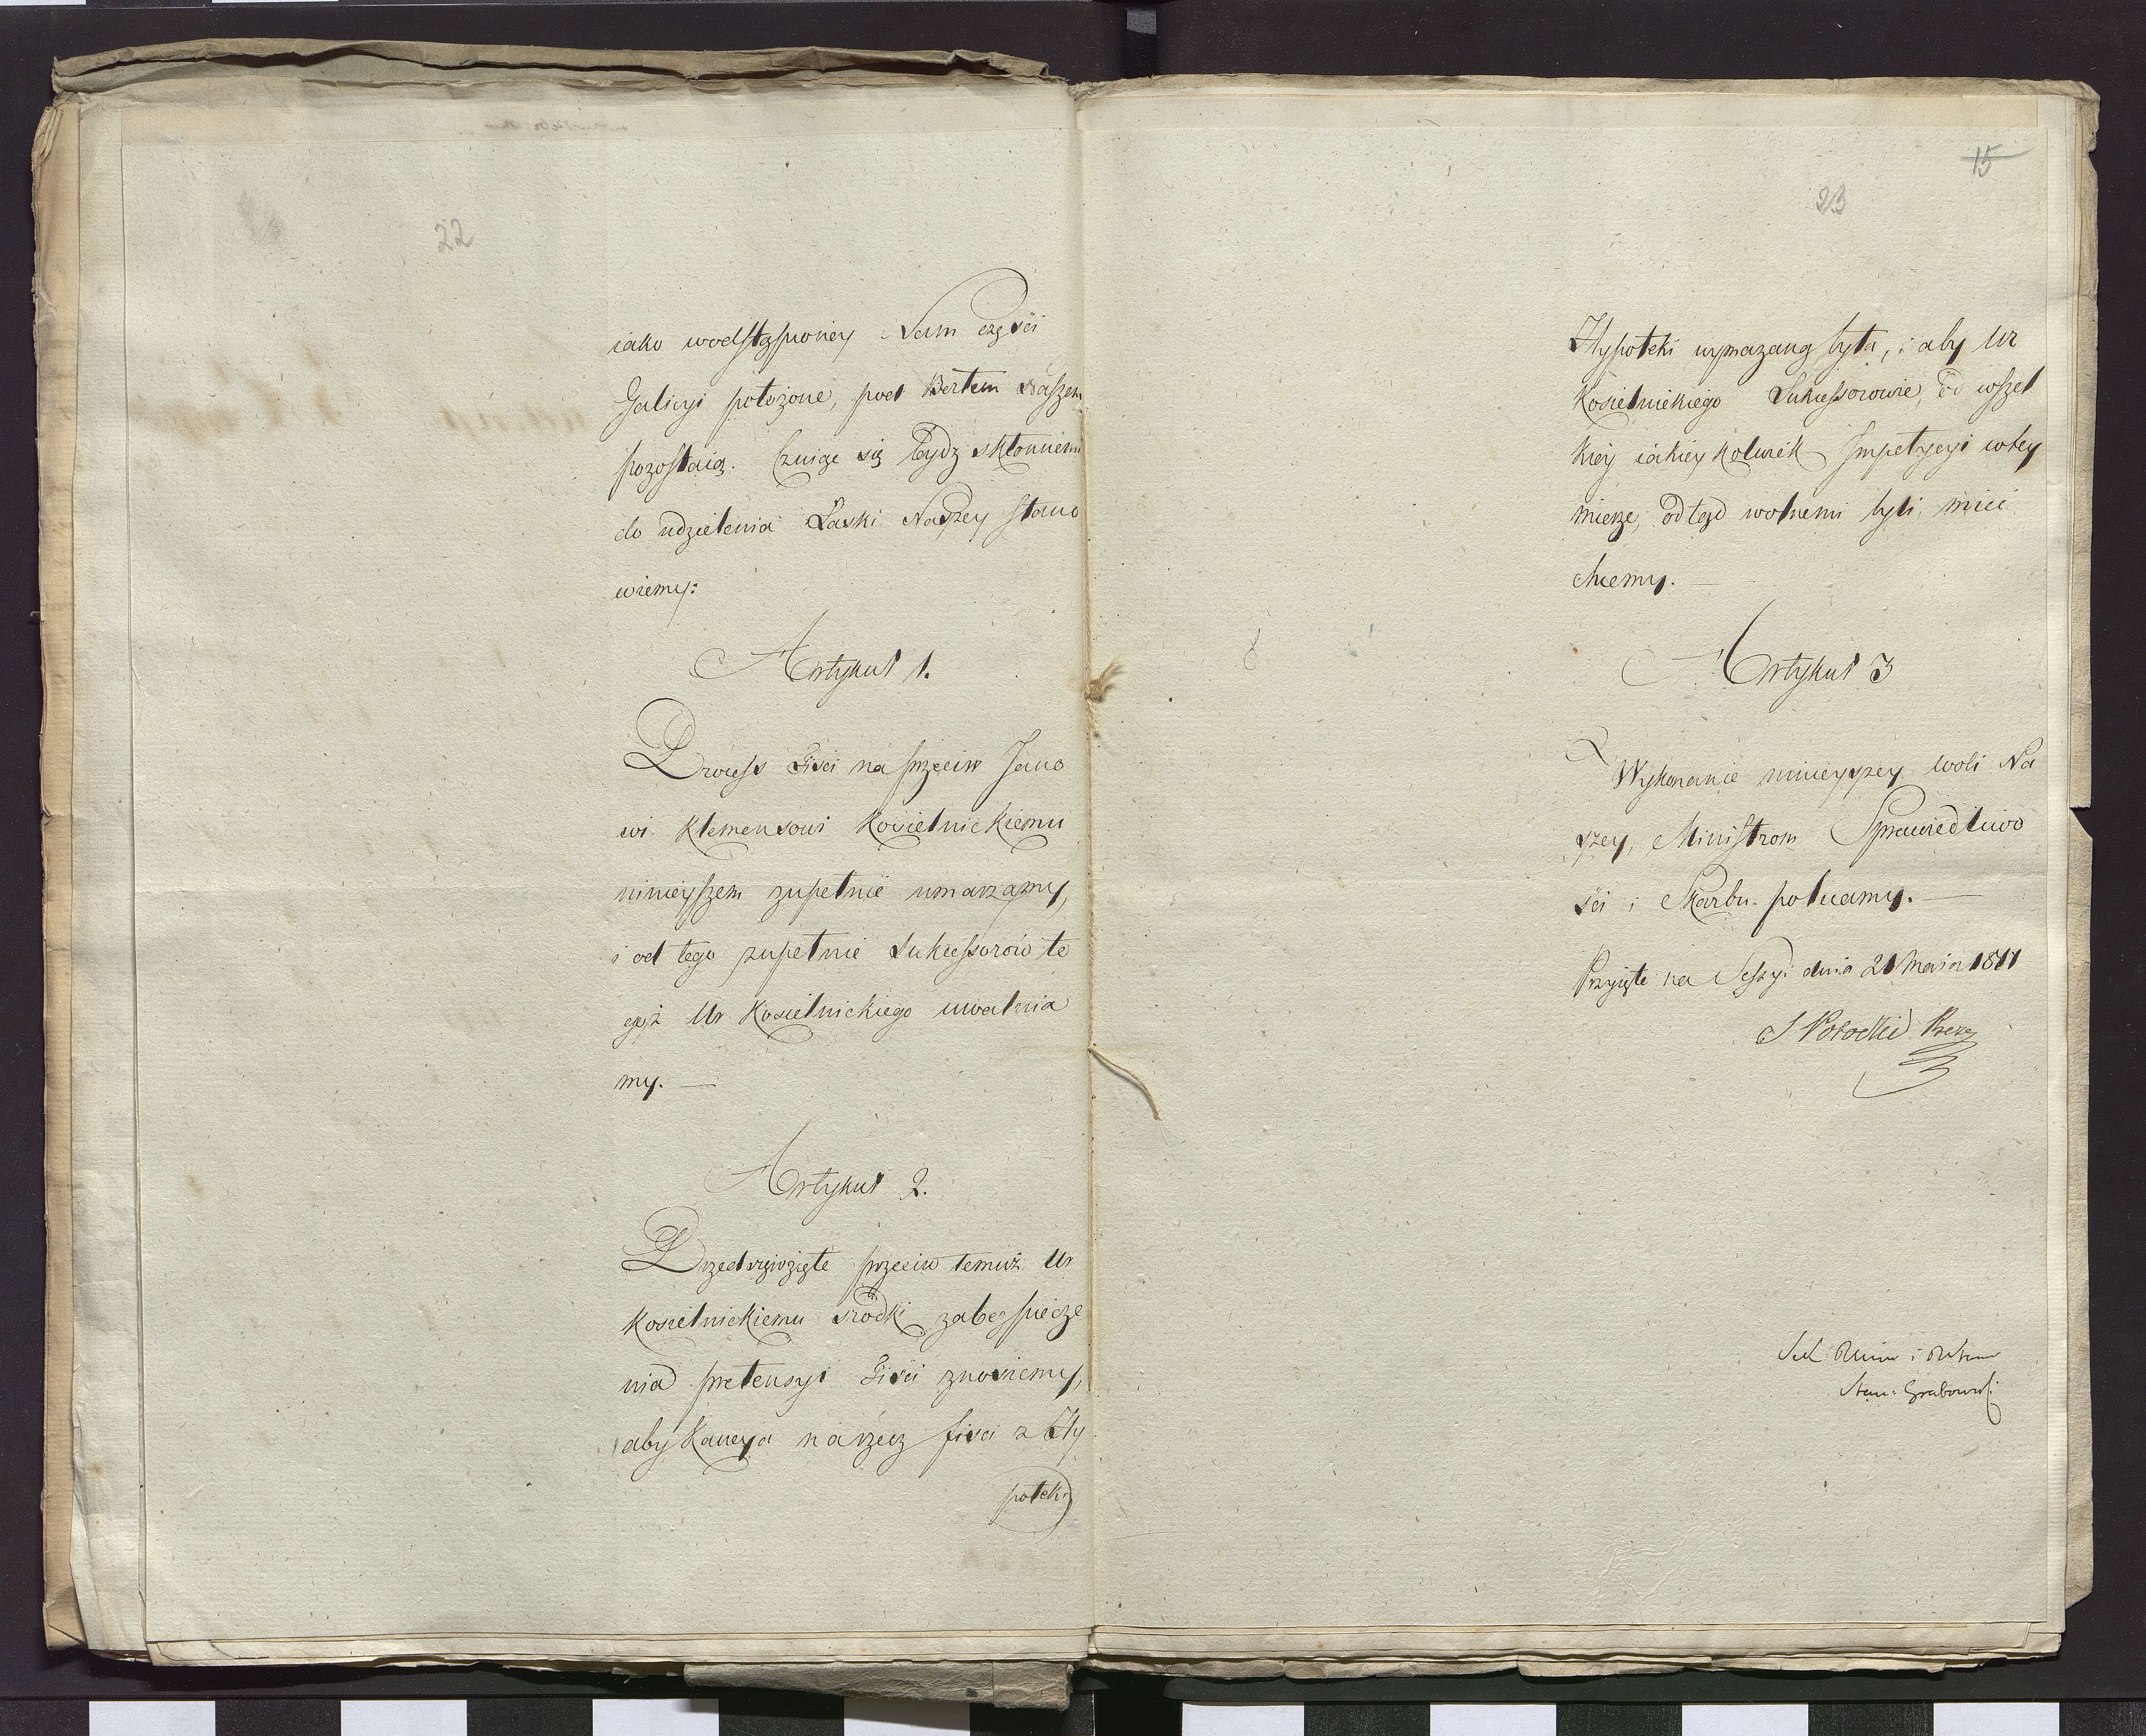 22
iako wodstąpioney Nam części
Galicyi położone, pod Berłem Naszem
pozostaią. Czuiąc się bydz skłonnemi
do udzielenia Łaski Naszey stano
wiemy:
Artykuł 1.
Process Fisci na przeciw Jano
wi Klemensowi Kosielnickiemu
ninieyszem zupełnie umarzamy,
i od tego zupełnie Sukcessorów te
goż Ur Kosielnickiego uwalnia
my. —
Artykuł 2.
Przedsięwzięte przeciw temuż Ur
Kosielnickiemu srodki zabespiecze
nia pretensyi Fisci znosiemy,
aby Kaucya na rzecz fisci z Hy
poteki
15
23
Hypoteki wymazaną była, i aby Ur
Kosielnickiego Sukcessorowie, od wszel
kiey iakiey kolwiek Impetycyi wtey
mierze, odtąd wolnemi byli, mieć
chcemy. —
Artykuł 3
Wykonanie ninieyszey woli Na
szey, Ministrom Sprawiedliwo
ści i Skarbu polecamy. —
Przyięte na Sessyi dnia 21 Maia 1811
S Potocki Prezes
Stan: Grabowski